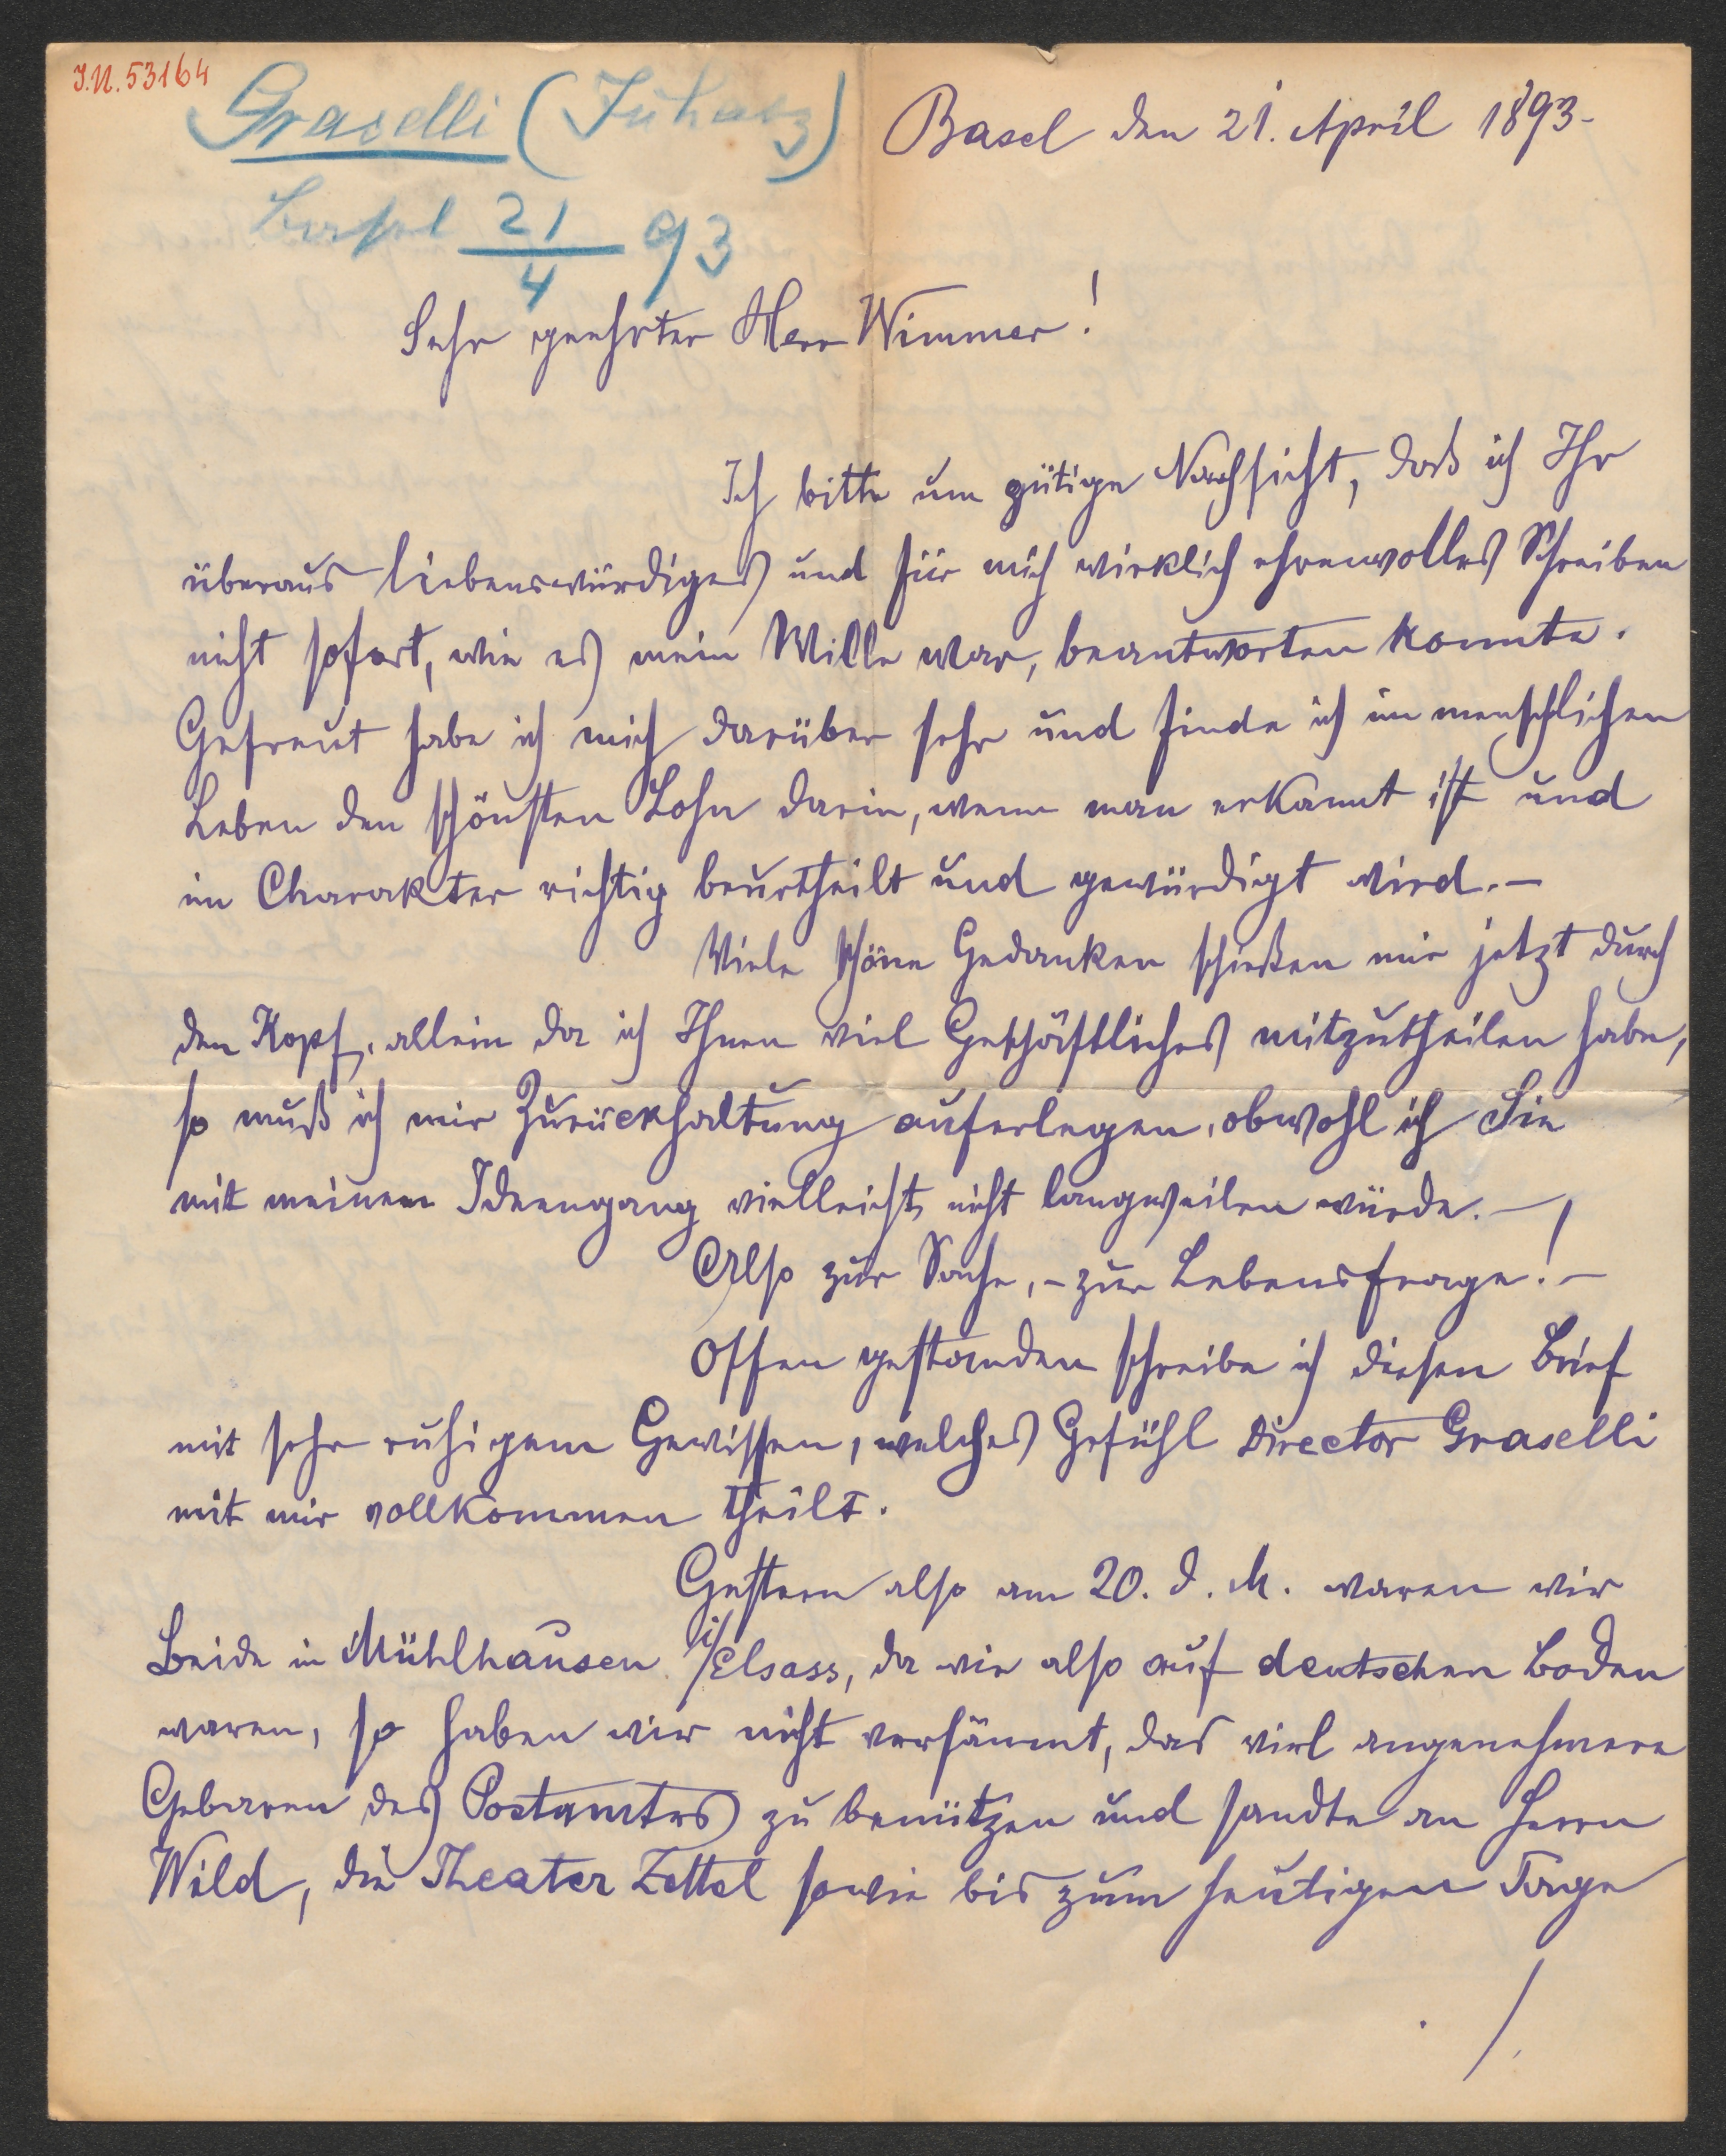 J.N. 53164
Graselli (Juhasz)
Basel 21/4 93
Basel den 21. April 1893.-
Sehr geehrter Herr Wimmer!
Ich bitte um gütige Nachsicht, daß ich Ihr
überaus liebenswürdiges und für mich wirklich ehrenvolles Schreiben
nicht sofort, wie es mein Wille war, beantworten konnte.
Gefreut habe ich mich darüber sehr und finde ich im menschlichen
Leben den schönsten Lohn darin, wenn man erkannt ist und
im Charakter richtig beurtheilt und gewürdigt wird.-
Viele schöne Gedanken schießen mir jetzt durch
den Kopf, allein da ich Ihnen viel Geschäftliches mitzutheilen habe,
so muß ich mir Zurückhaltung auferlegen, obwohl ich Sie
mit meinem Ideengang vielleicht nicht langweilen würde.-
Also zur Sache, - zur Lebensfrage! -
Offen gestanden schreibe ich diesen Brief
mit sehr ruhigem Gewissen, welches Gefühl Director Graselli
mit mir vollkommen theilt.
Gestern also am 20. d. M. waren wir
Beide in Mühlhausen i/Elsass, da wir also auf deutschen Boden
waren, so haben wir nicht versäumt, das viel angenehmere
Gebaren des Postamtes zu benützen und sandte an Herrn
Wild, die Theater Zettel sowie bis zum heutigen Tage
./.